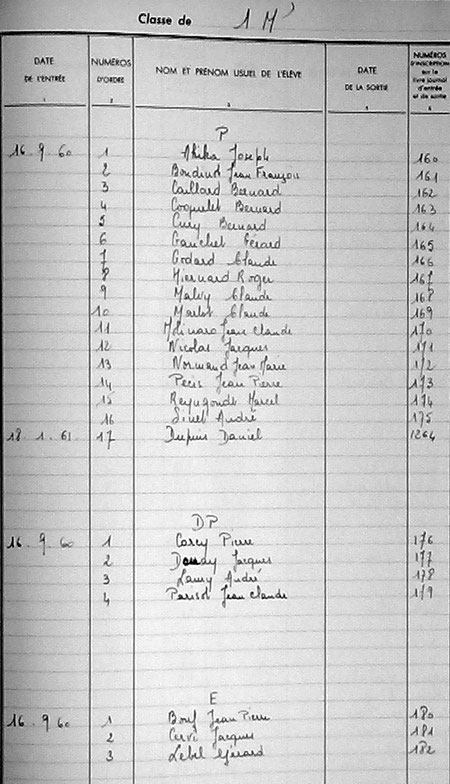 Classe de 1 M'
DATE DE L'ENTRÉE
NUMÉROS D'ORDRE
NOM ET PRÉNOM USUEL DE L'ÉLÈVE
DATE DE LA SORTIE
NUMÉROS D'INSCRIPTION sur le livre journal d'entrée et de sortie
P
16. 9. 60 1 Akika Joseph 160
2 Bondinot Jean François 161
3 Caillard Bernard 162
4 Coquelet Bernard 163
5 Cury Bernard 164
6 Gauchet Gérard 165
7 Godard Claude 166
8 Roger 167
9 Malvy Claude 168
10 Marlot Claude 169
11 Molinaro Jean Claude 170
12 Nicolas Jacques 171
13 Normand Jean Marie 172
14 Jean Pierre 173
15 Marcel 174
16 Sinet André 175
18. 1. 61 17 Dupuis Daniel 1264
DP
16. 9. 60 1 Corey Pierre 176
2 Jacques 177
3 Lamy André 178
4 Parisot Jean Claude 179
E
16. 9. 60 1 Jean Pierre 180
2 Cervi Jacques 181
3 Lebel Gérard 182